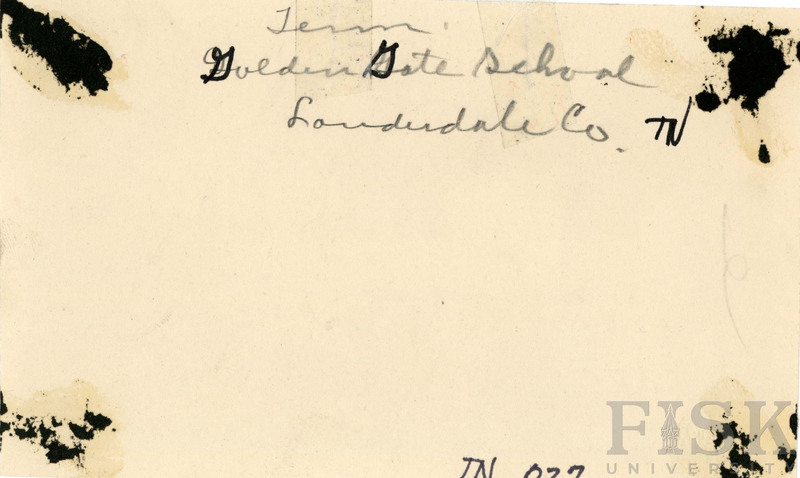 Tenn.
Golden Gate School
Lauderdale Co. TN
TN 077
FISK
UNIVERSITY